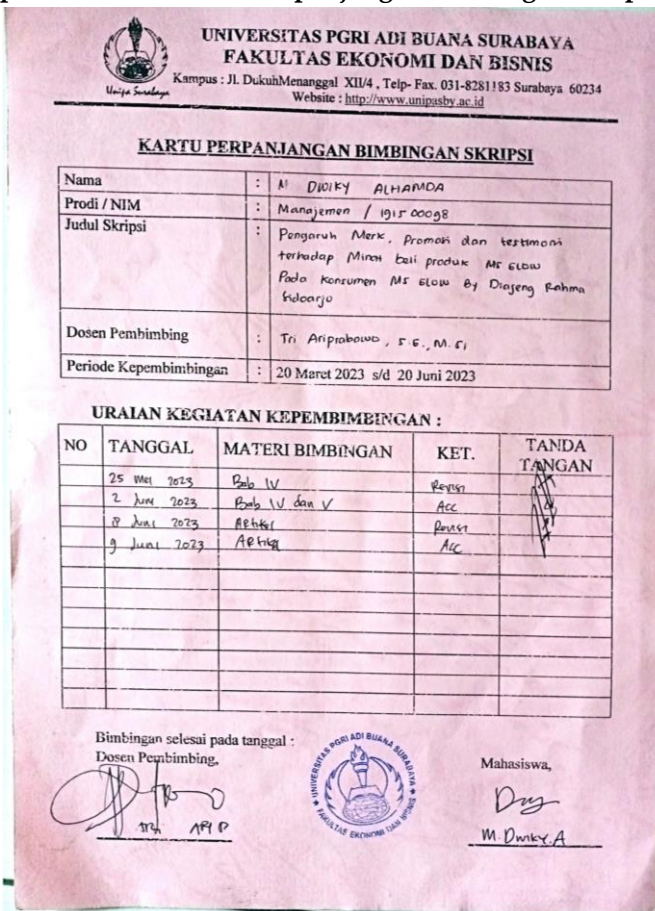 UNIVERSITAS PGRI ADI BUANA SURABAYA
FAKULTAS EKONOMI DAN BISNIS
Kampus : Jl. DukuhMenanggal XII/4 , Telp- Fax. 031-8281183 Surabaya 60234
Website : http://www.unipasby.ac.id
Unipa Surabaya
KARTU PERPANJANGAN BIMBINGAN SKRIPSI
Nama : M DWIKY ALHAMDA
Prodi / NIM : Manajemen / 191500098
Judul Skripsi : Pengaruh Merk, Promosi dan testimoni
terhadap Minat beli produk MS GLOW
Pada Konsumen MS GLOW By Diajeng Rahma
Sidoarjo
Dosen Pembimbing : Tri Ariprabowo, S.E., M.Si
Periode Kepembimbingan : 20 Maret 2023 s/d 20 Juni 2023
URAIAN KEGIATAN KEPEMBIMBINGAN :
NO TANGGAL MATERI BIMBINGAN KET. TANDA TANGAN
25 Mei 2023 Bab IV Revisi
2 Juni 2023 Bab IV dan V Acc
8 Juni 2023 Artikel Revisi
9 Juni 2023 Artikel Acc
Bimbingan selesai pada tanggal :
Dosen Pembimbing,
Mahasiswa,
UNIVERSITAS PGRI ADI BUANA SURABAYA
FAKULTAS EKONOMI DAN BISNIS
M. Dwiky. A